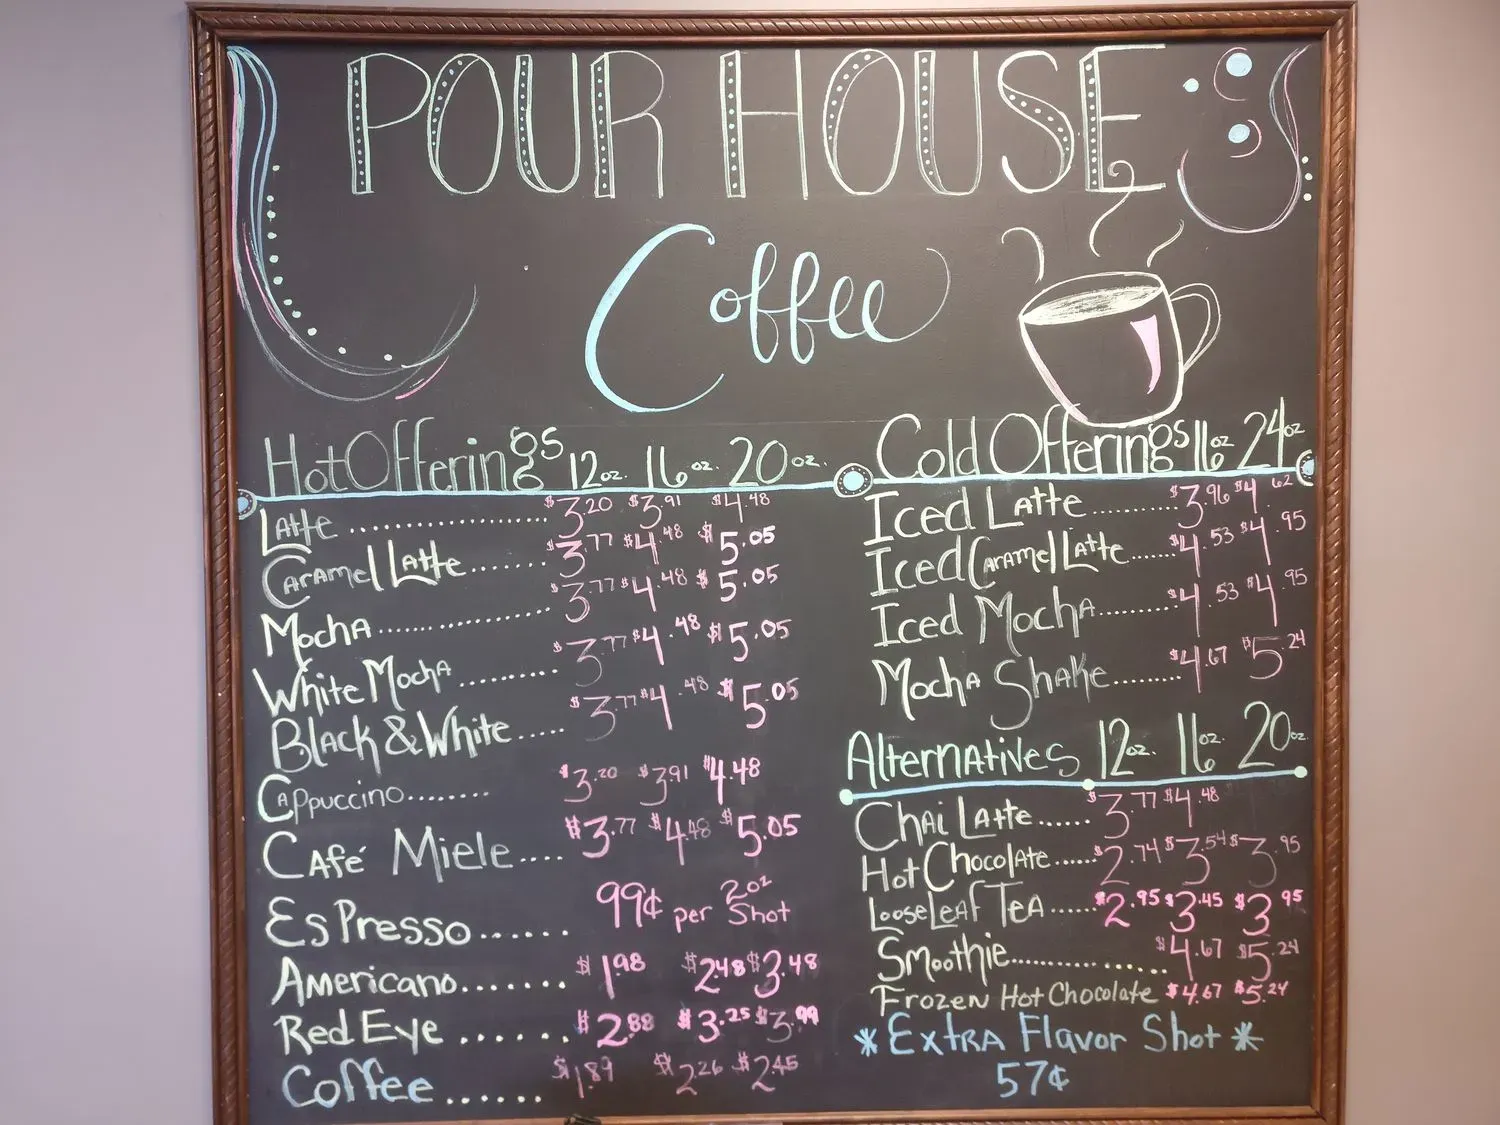 POUR HOUSE
Coffee
Hot Offerings 12oz. 16oz. 20oz.
Latte .................... $3.20 $3.91 $4.48
Caramel Latte........ $3.77 $4.48 $5.05
Mocha ................. $3.77 $4.48 $5.05
White Mocha .......... $3.77 $4.48 $5.05
Black & White ..... $3.77 $4.48 $5.05
Cappuccino........ $3.20 $3.91 $4.48
Café Miele.... $3.77 $4.48 $5.05
Espresso ...... 99¢ per 2oz Shot
Americano....... $1.98 $2.48 $3.48
Red Eye ....... $2.88 $3.25 $3.99
Coffee ...... $1.89 $2.26 $2.45
Cold Offerings 16oz 24oz
Iced Latte .......... $3.96 $4.62
Iced Caramel Latte....... $4.53 $4.95
Iced Mocha.......... $4.53 $4.95
Mocha Shake......... $4.67 $5.24
Alternatives 12oz. 16oz. 20oz.
Chai Latte...... $3.77 $4.48
Hot Chocolate...... $2.74 $3.54 $3.95
Loose Leaf Tea...... $2.95 $3.45 $3.95
Smoothie................. $4.67 $5.24
Frozen Hot Chocolate $4.67 $5.24
* Extra Flavor Shot *
57¢